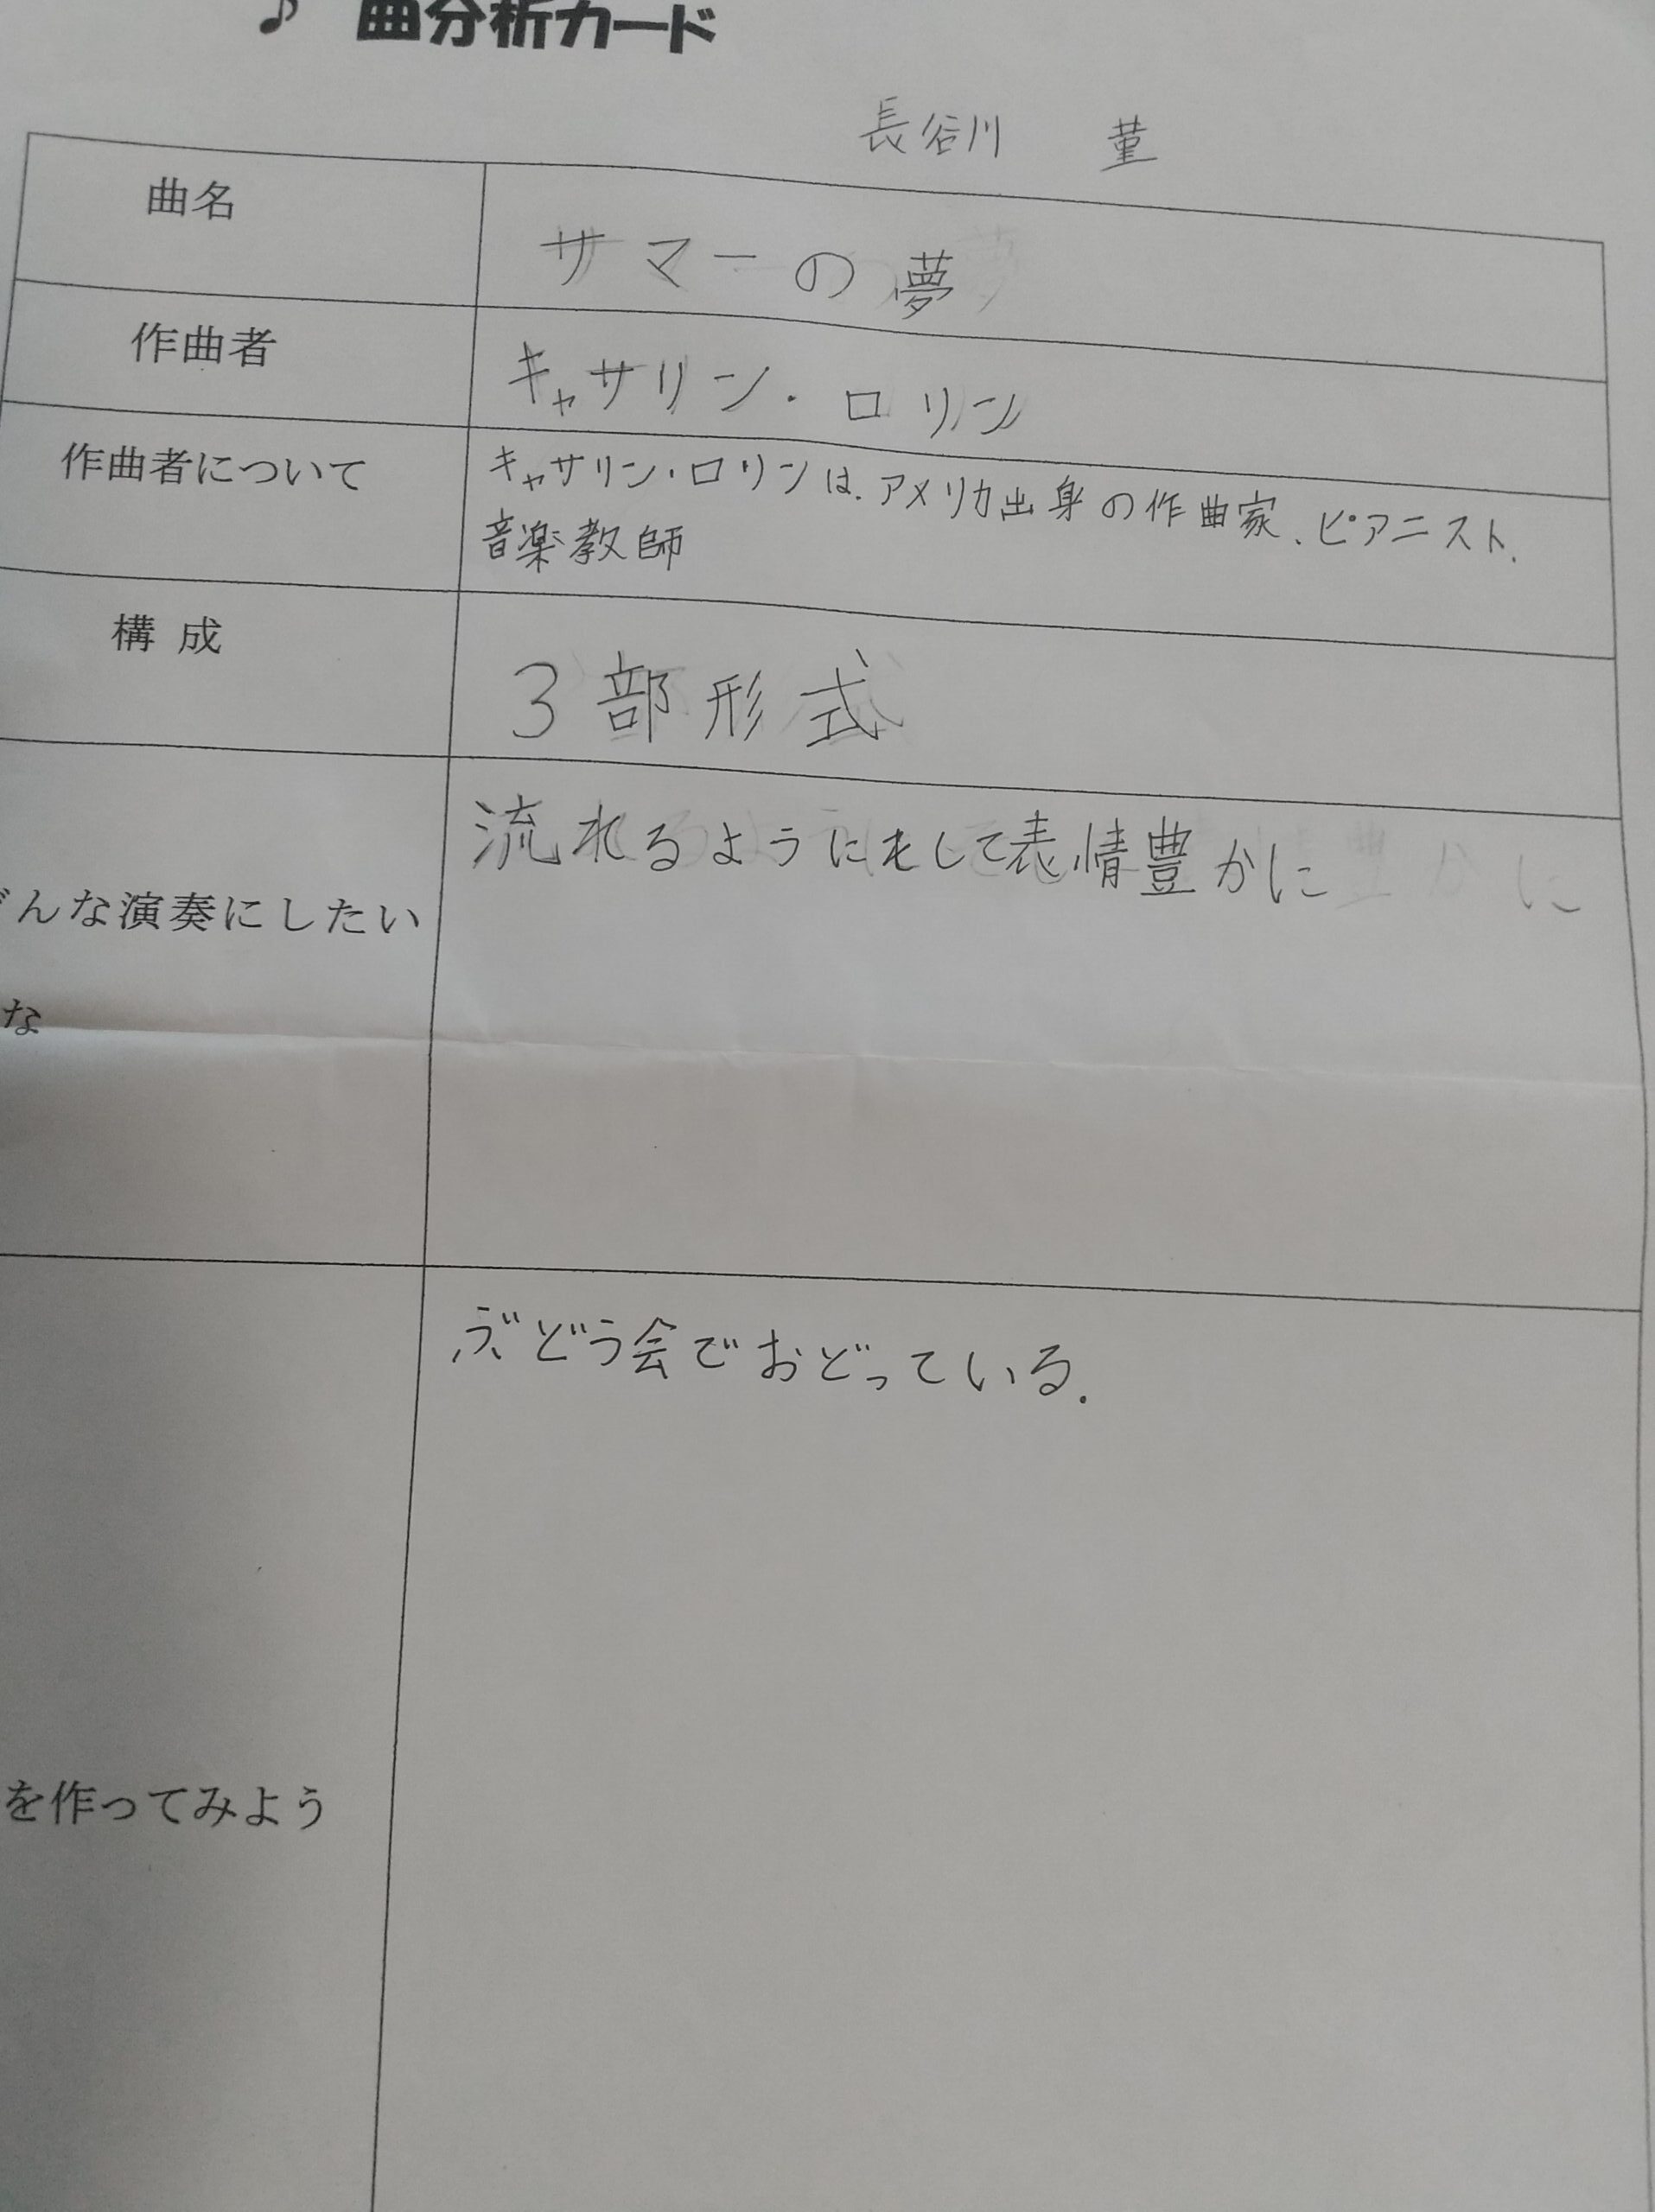 ♪ 曲分析カード
長谷川 菫
曲名
サマーの夢
作曲者
キャサリン・ロリン
作曲者について
キャサリン・ロリンは、アメリカ出身の作曲家、ピアニスト、
音楽教師
構成
3部形式
どんな演奏にしたい
な
流れるようにそして表情豊かに
ぶどう会でおどっている。
を作ってみよう